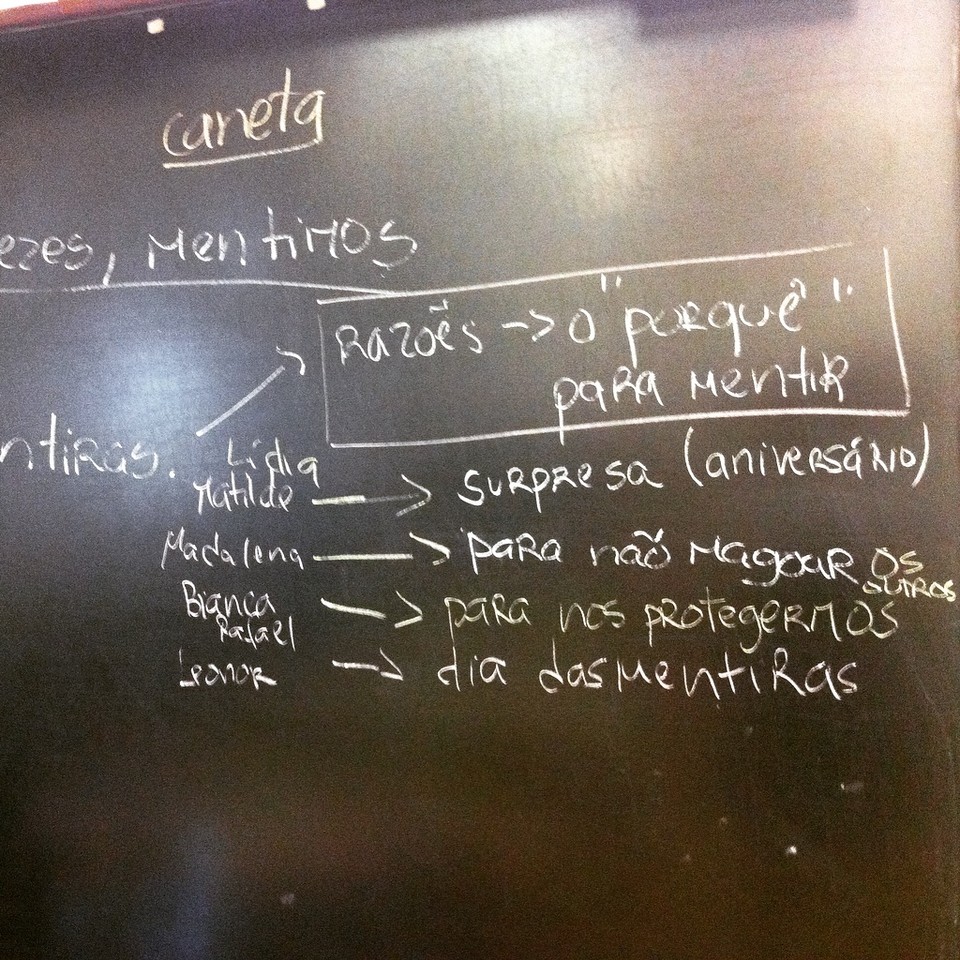 caneta
ezes, mentimos
razões -> o "porquê"
para mentir
ntiras.
Lídia
Matilde -> surpresa (aniversário)
Madalena -> para não magoar os
outros
Bianca -> para nos protegermos
Rafael
Leonor -> dia das mentiras